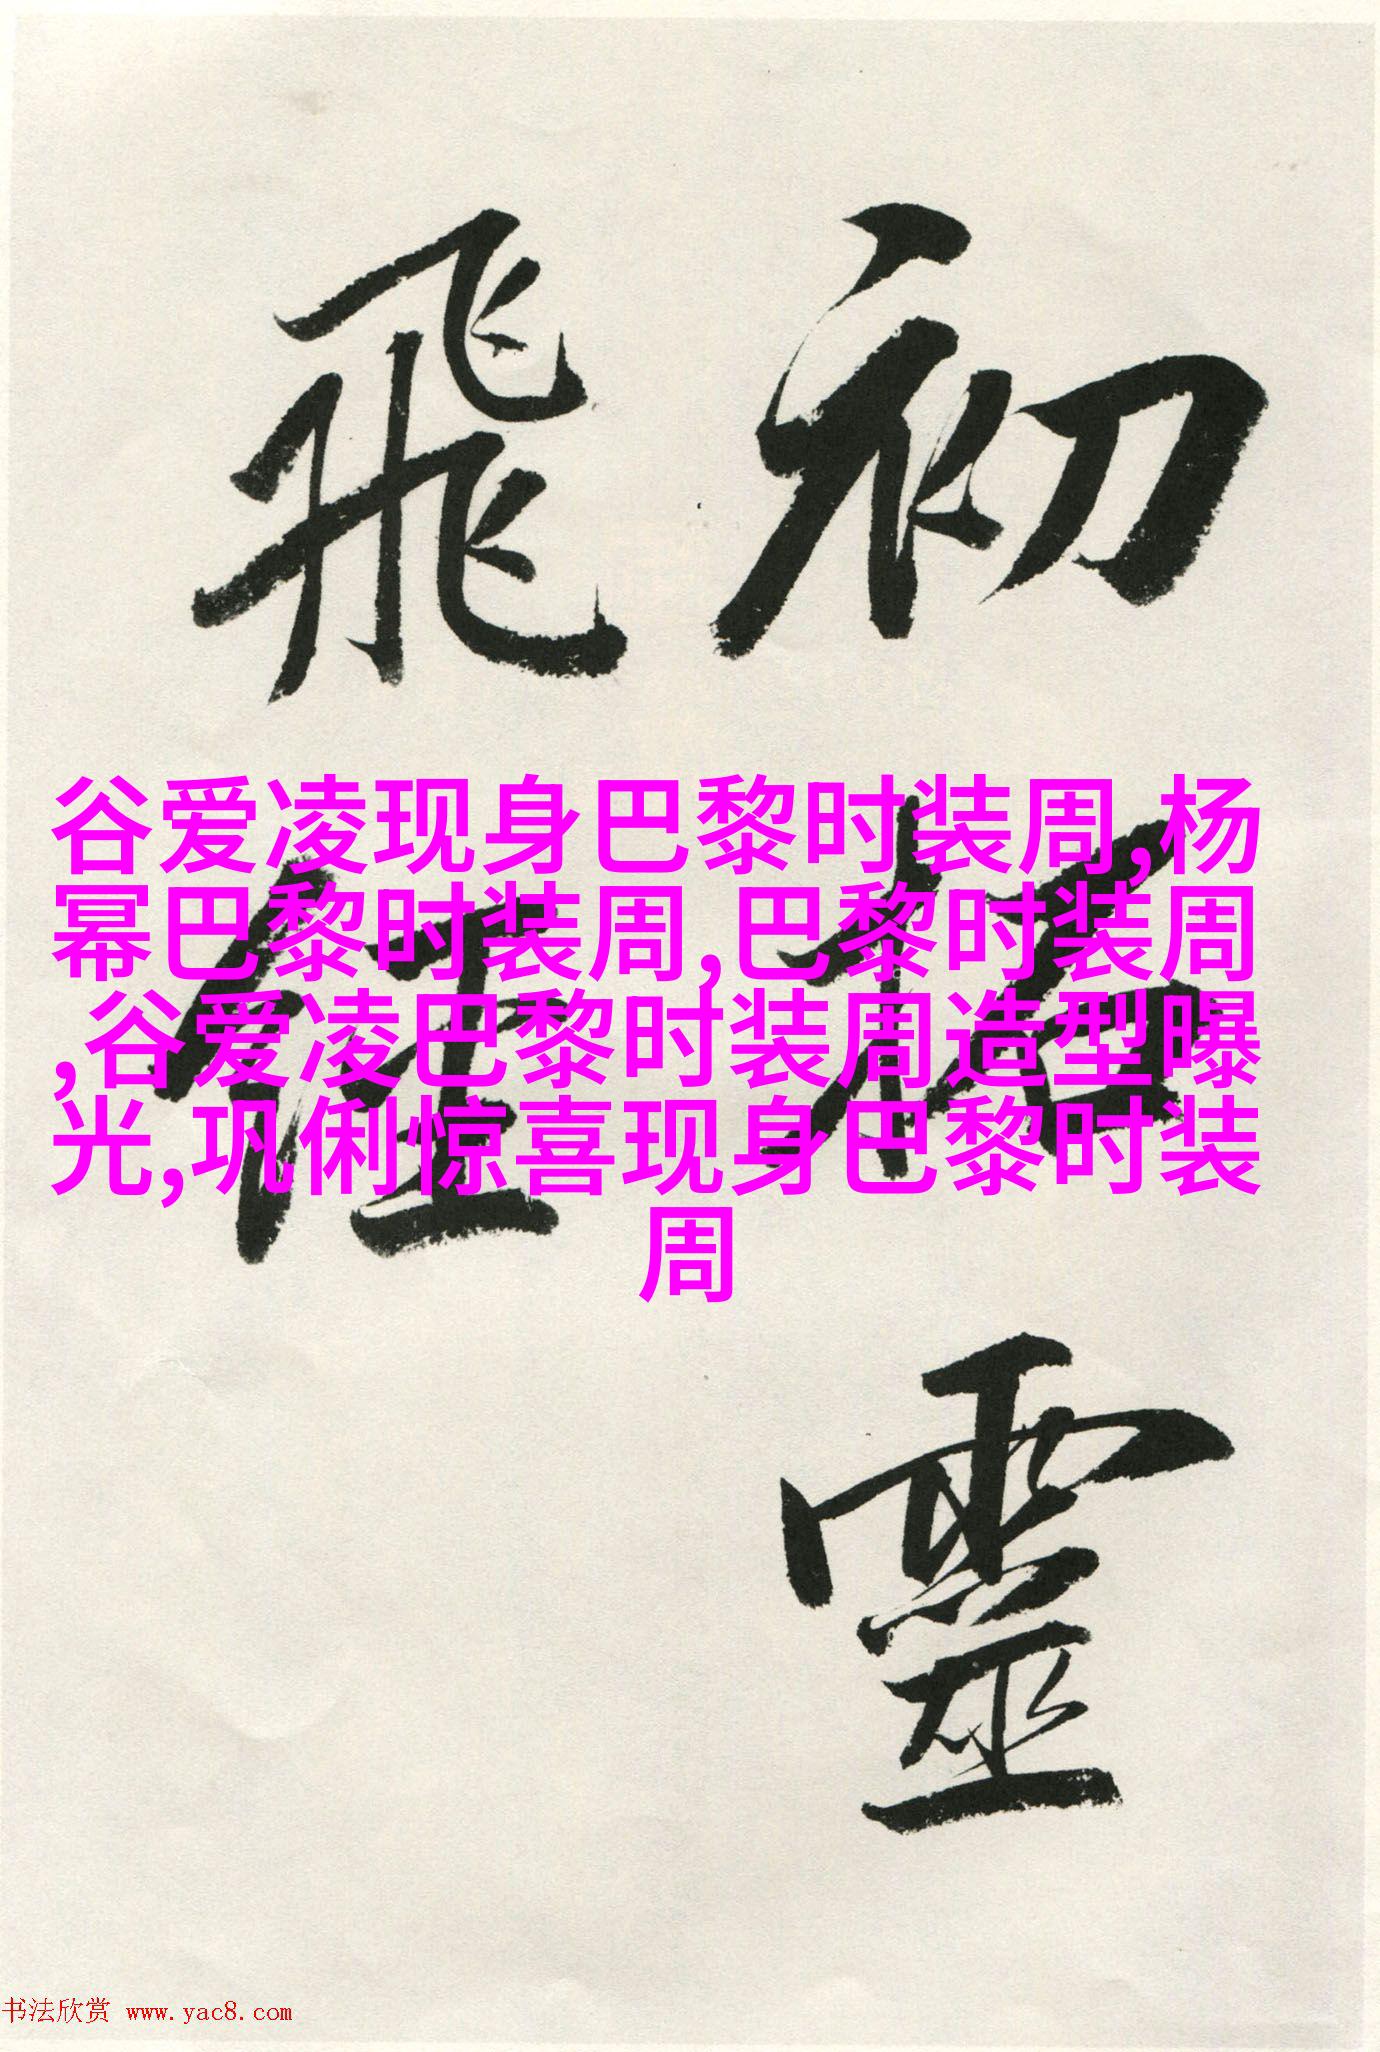 初拓靈
飛經
谷爱凌现身巴黎时装周,杨
幂巴黎时装周,巴黎时装周
,谷爱凌巴黎时装周造型曝
光,巩俐惊喜现身巴黎时装
周
书法欣赏 www.yac8.com